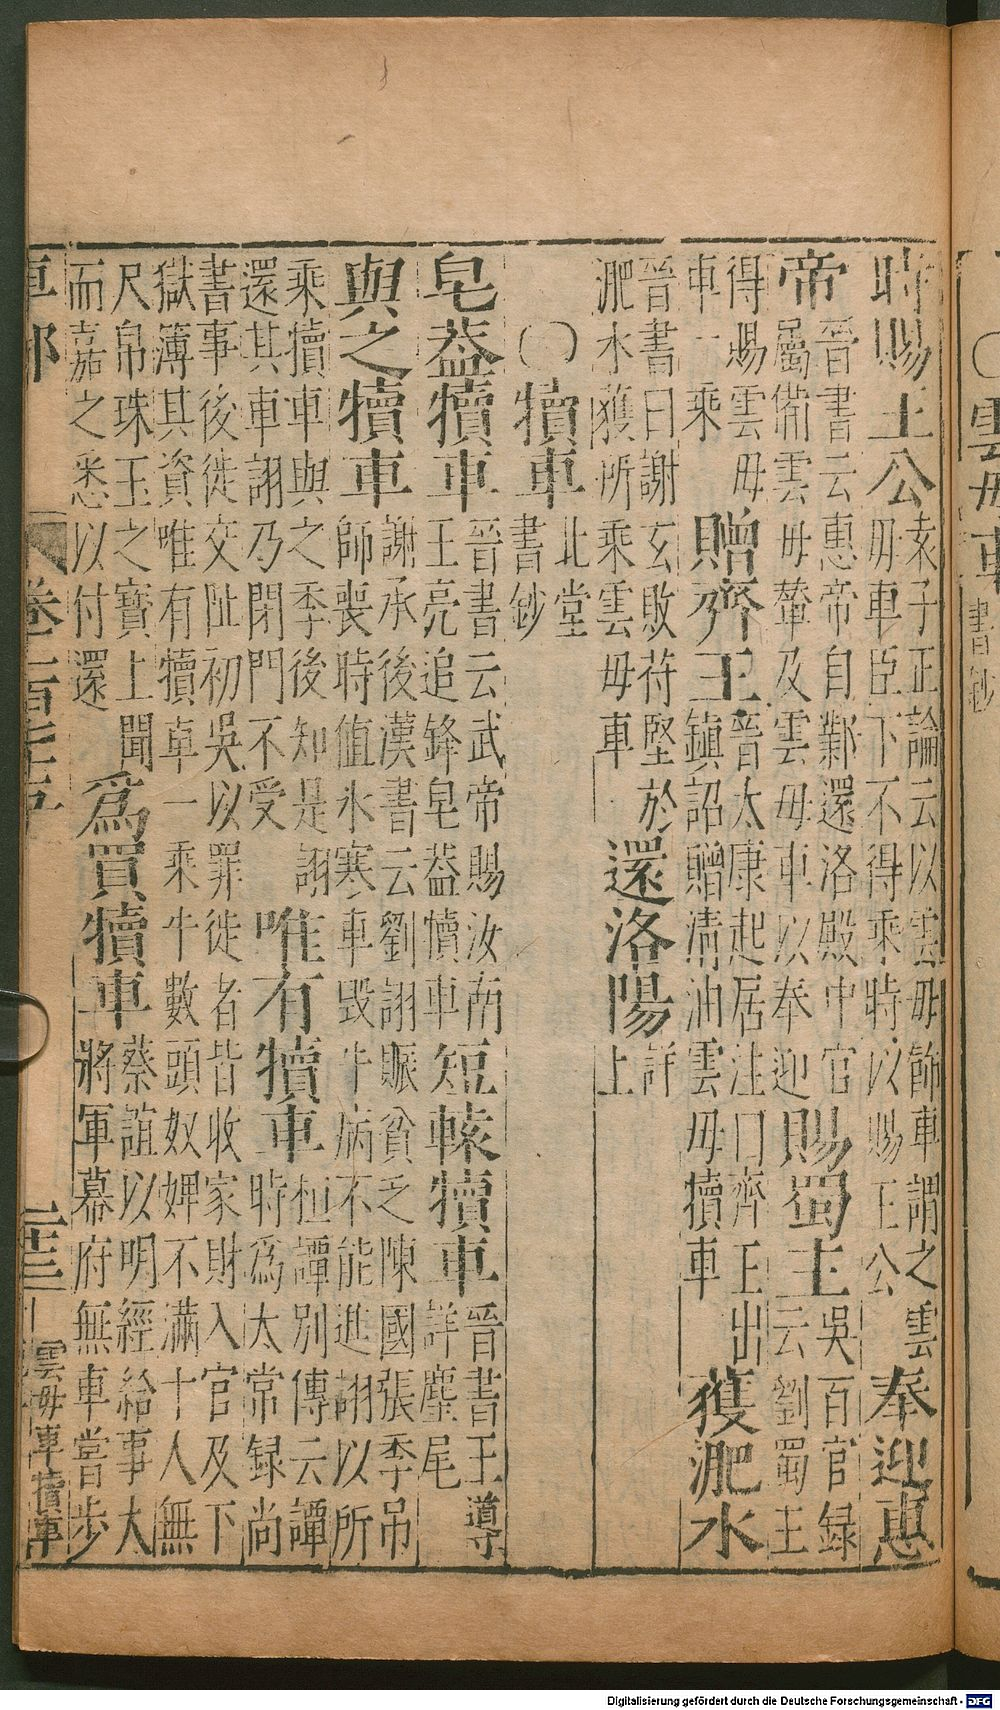 ○雲母車書鈔
時賜王公袁子正論云以雲母飾車謂之雲母車臣下不得乘時以賜王公奉迎惠
帝晉書云惠帝自鄴還洛殿中官屬備雲母輦及雲母車以奉迎賜蜀主吳百官録云劉蜀王
得賜雲母車一乘贈齊王晉太康起居注曰齊王出鎮詔贈清油雲母犢車獲淝水
晉書曰謝玄敗苻堅於淝水獲所乘雲母車還洛陽詳上
○犢車北堂書鈔
皂葢犢車晉書云武帝賜汝南王亮追鋒皂葢犢車短轅犢車晉書王導詳麈尾
與之犢車謝承後漢書云劉翊賑貧乏陳國張季弔師喪時値氷寒車毀牛病不能進翊以所
乘犢車與之季後知是翊還其車翊乃閉門不受唯有犢車桓譚別傳云譚時爲太常録尚
書事後徙交阯初吳以罪徙者皆收家財入官及下獄簿其資唯有犢車一乘牛數頭奴婢不滿十人無
尺帛珠玉之寶上聞而嘉之悉以付還爲買犢車蔡誼以明經給事大將軍幕府無車當步
車部 卷一百七十五 二十三 雲母車犢車
Digitalisierung gefördert durch die Deutsche Forschungsgemeinschaft - DFG